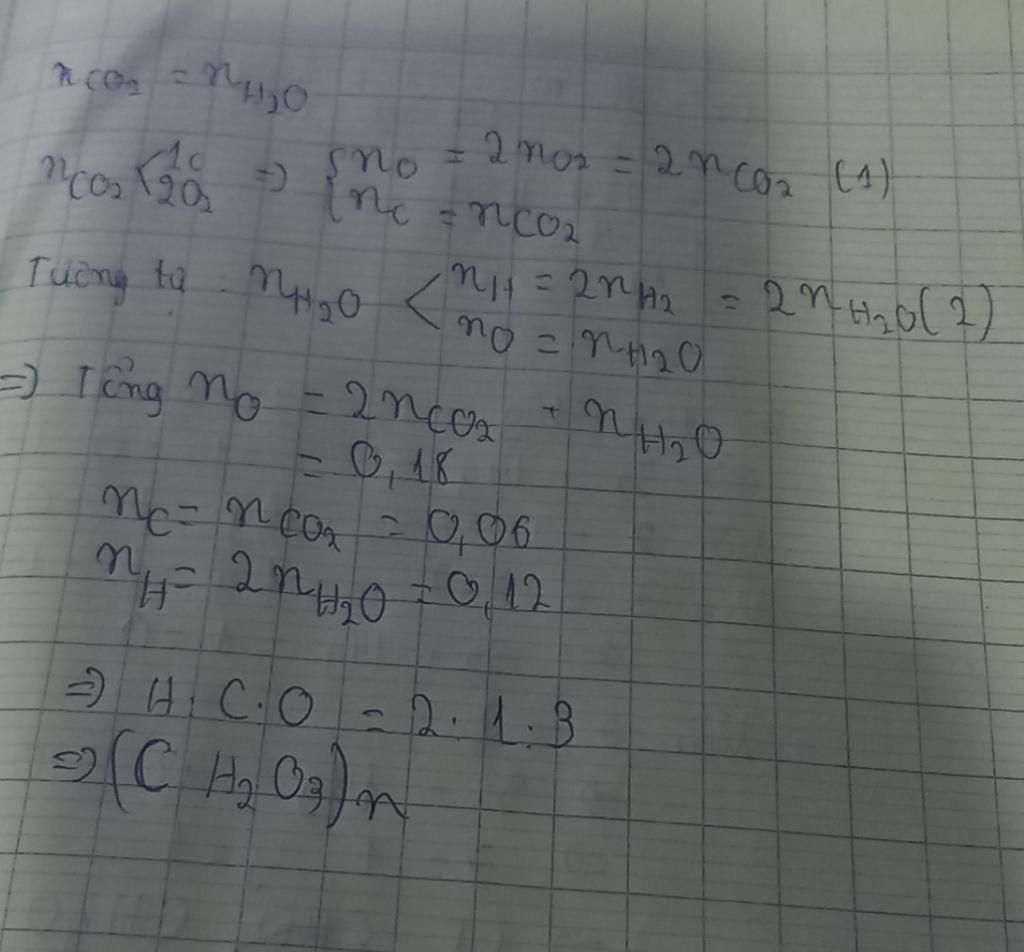 n CO2 = n H2O
nCO2 < 1C 2O2 => { nO = 2nO2 = 2nCO2 (1)
nC = nCO2
Tương tự. nH2O < nH = 2nH2 = 2nH2O (2)
nO = nH2O
=> Tổng nO = 2nCO2 + nH2O
= 0,18
nC = nCO2 = 0,06
nH = 2nH2O = 0,12
=> H : C : O = 2 : 1 : 3
=> (C H2 O3)n